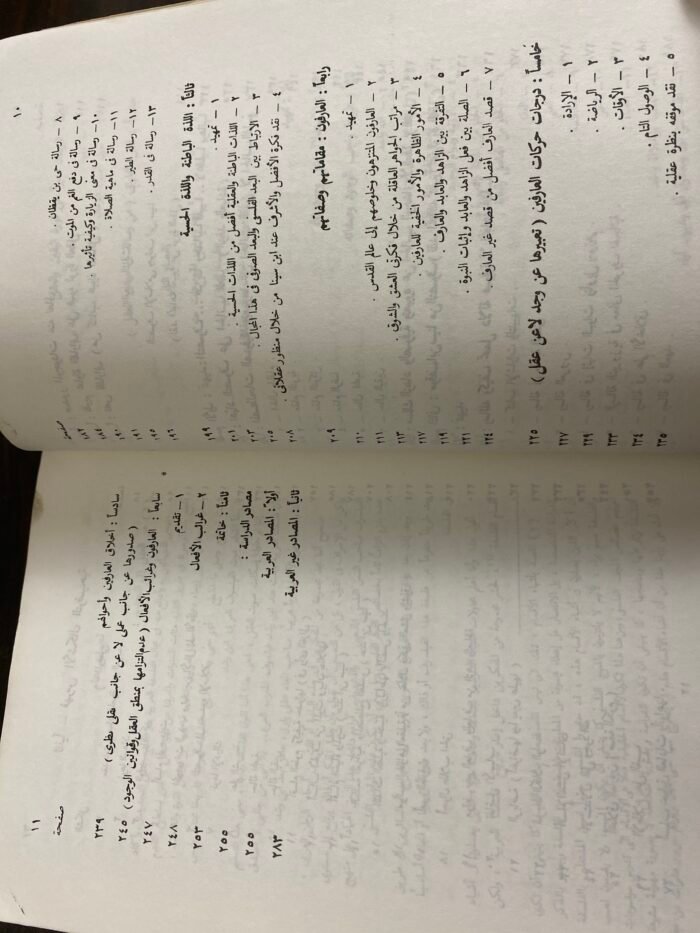 ١٠
صفحة
٨ – رسالة حى بن يقظان . ١٨٢
٩ – رسالة فى دفع الغم من الموت . ١٨٤
١٠ – رسالة فى معنى الزيارة وكيفية تأثيرها . ١٩٠
١١ – رسالة فى ماهية الصلاة . ١٩١
١٢ – رسالة الطير . ١٩٥
١٣ – رسالة فى القدر . ١٩٦
ثالثاً : اللذة الباطنة واللذة الحسية ١٩٩
١ – تمهيد . ٢٠١
٢ – اللذات الباطنة والعقلية أفضل من اللذات الحسية . ٢٠٣
٣ – الارتباط بين البعد الفلسفى والبعد الصوفى فى هذا المجال . ٢٠٥
٤ – نقد فكرة الأفضل والأشرف عند ابن سينا من خلال منظور عقلانى . ٢٠٨
رابعاً : العارفون : مقاماتهم وصفاتهم ٢٠٩
١ – تمهيد . ٢١٠
٢ – العارفون المتنزهون وخلوصهم إلى عالم القدس . ٢١١
٣ – مراتب الجواهر العاقلة من خلال فكرتى العشق والشوق . ٢١٣
٤ – الأمور الظاهرة والأمور الخفية للعارفين . ٢١٧
٥ – التفرقة بين الزاهد والعابد والعارف . ٢١٩
٦ – الصلة بين فعل الزاهد والعابد وإثبات النبوة . ٢٢١
٧ – قصد العارف أفضل من قصد غير العارف . ٢٢٤
خامساً : درجات حركات العارفين ( تعبيرها عن وجد لاعن عقل ) ٢٢٥
١ – الإرادة . ٢٢٧
٢ – الرياضة . ٢٢٩
٣ – الأوقات . ٢٣٣
٤ – الوصول التام . ٢٣٤
٥ – نقد موقفه بنظرة عقلية . ٢٣٥
١١
صفحة
سادساً : أخلاق العارفين وأحوالهم ٢٣٩
( صدورها عن جانب عملى لا عن جانب عقلى نظرى )
سابعاً : العارفون وغرائب الأفعال ( عدم التزامها بمنطق العقل وقوانين الوجود ) ٢٤٥
١ – تقديم ٢٤٧
٢ – غرائب الأفعال ٢٤٨
ثامناً : خاتمة ٢٥٣
مصادر الدراسة : ٢٥٥
أولاً : المصادر العربية ٢٥٥
ثانياً : المصادر غير العربية ٢٨٣